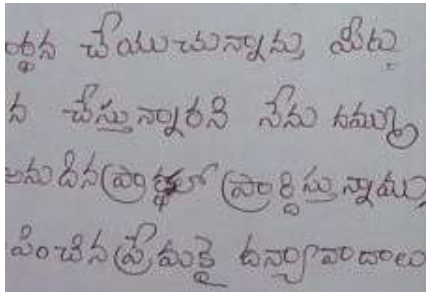 ర్థన చేయుచున్నాను మీరు
న చేస్తున్నారని నేను నమ్ము
అనుదిన ప్రార్థలో ప్రార్థిస్తున్నాము
పించిన ప్రేమకై దన్యావాదాలు